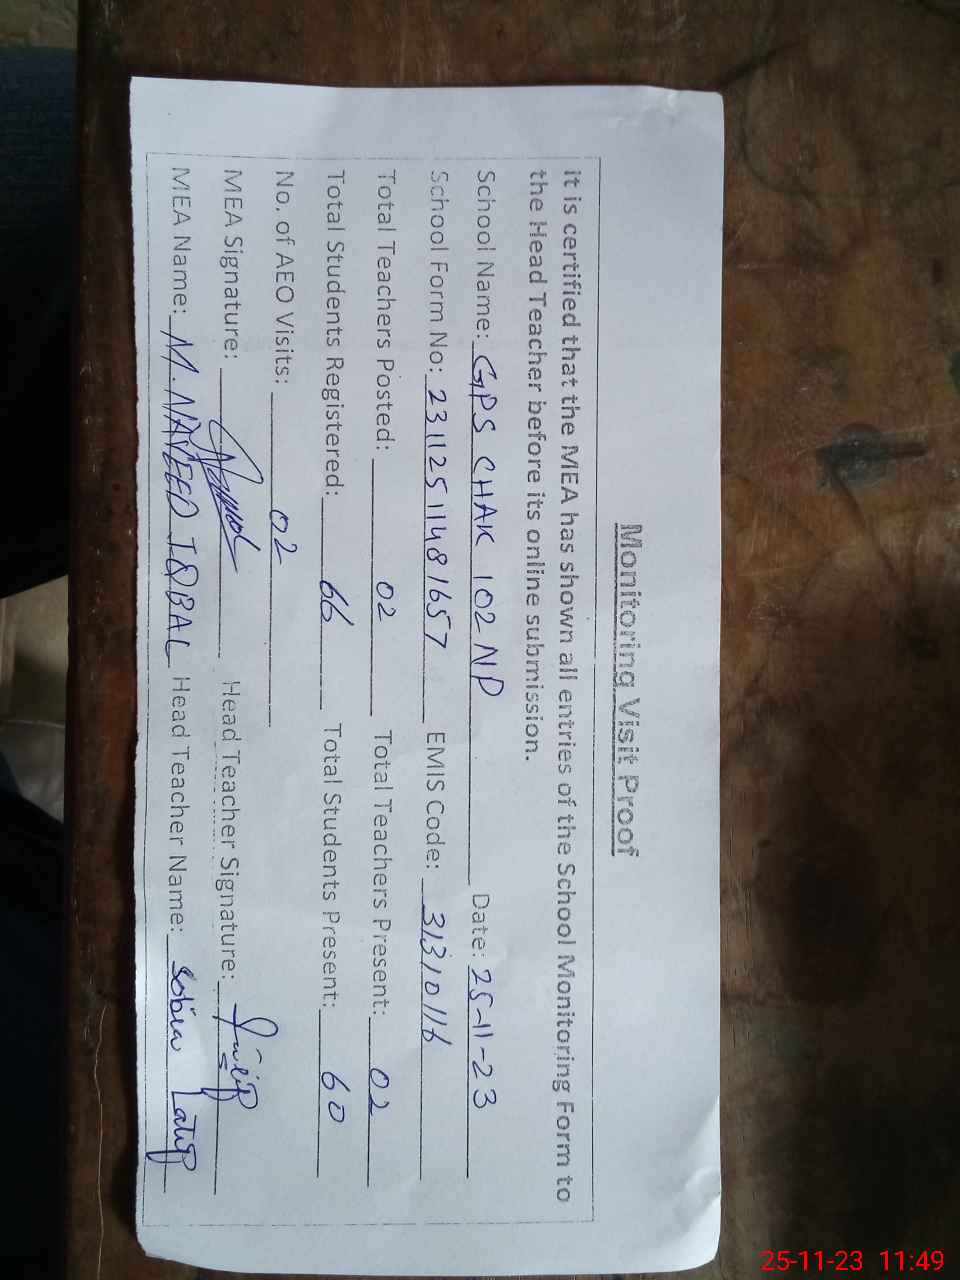 Monitoring Visit Proof
it is certified that the MEA has shown all entries of the School Monitoring Form to
the Head Teacher before its online submission.
School Name: GPS CHAK 102 NP Date: 25-11-23
School Form No: 23112511481657 EMIS Code: 31310116
Total Teachers Posted: 02 Total Teachers Present: 02
Total Students Registered: 66 Total Students Present: 60
No. of AEO Visits: 02
MEA Signature: Head Teacher Signature:
MEA Name: M. NAVEED IQBAL Head Teacher Name: Sobia Latif
25-11-23 11:49